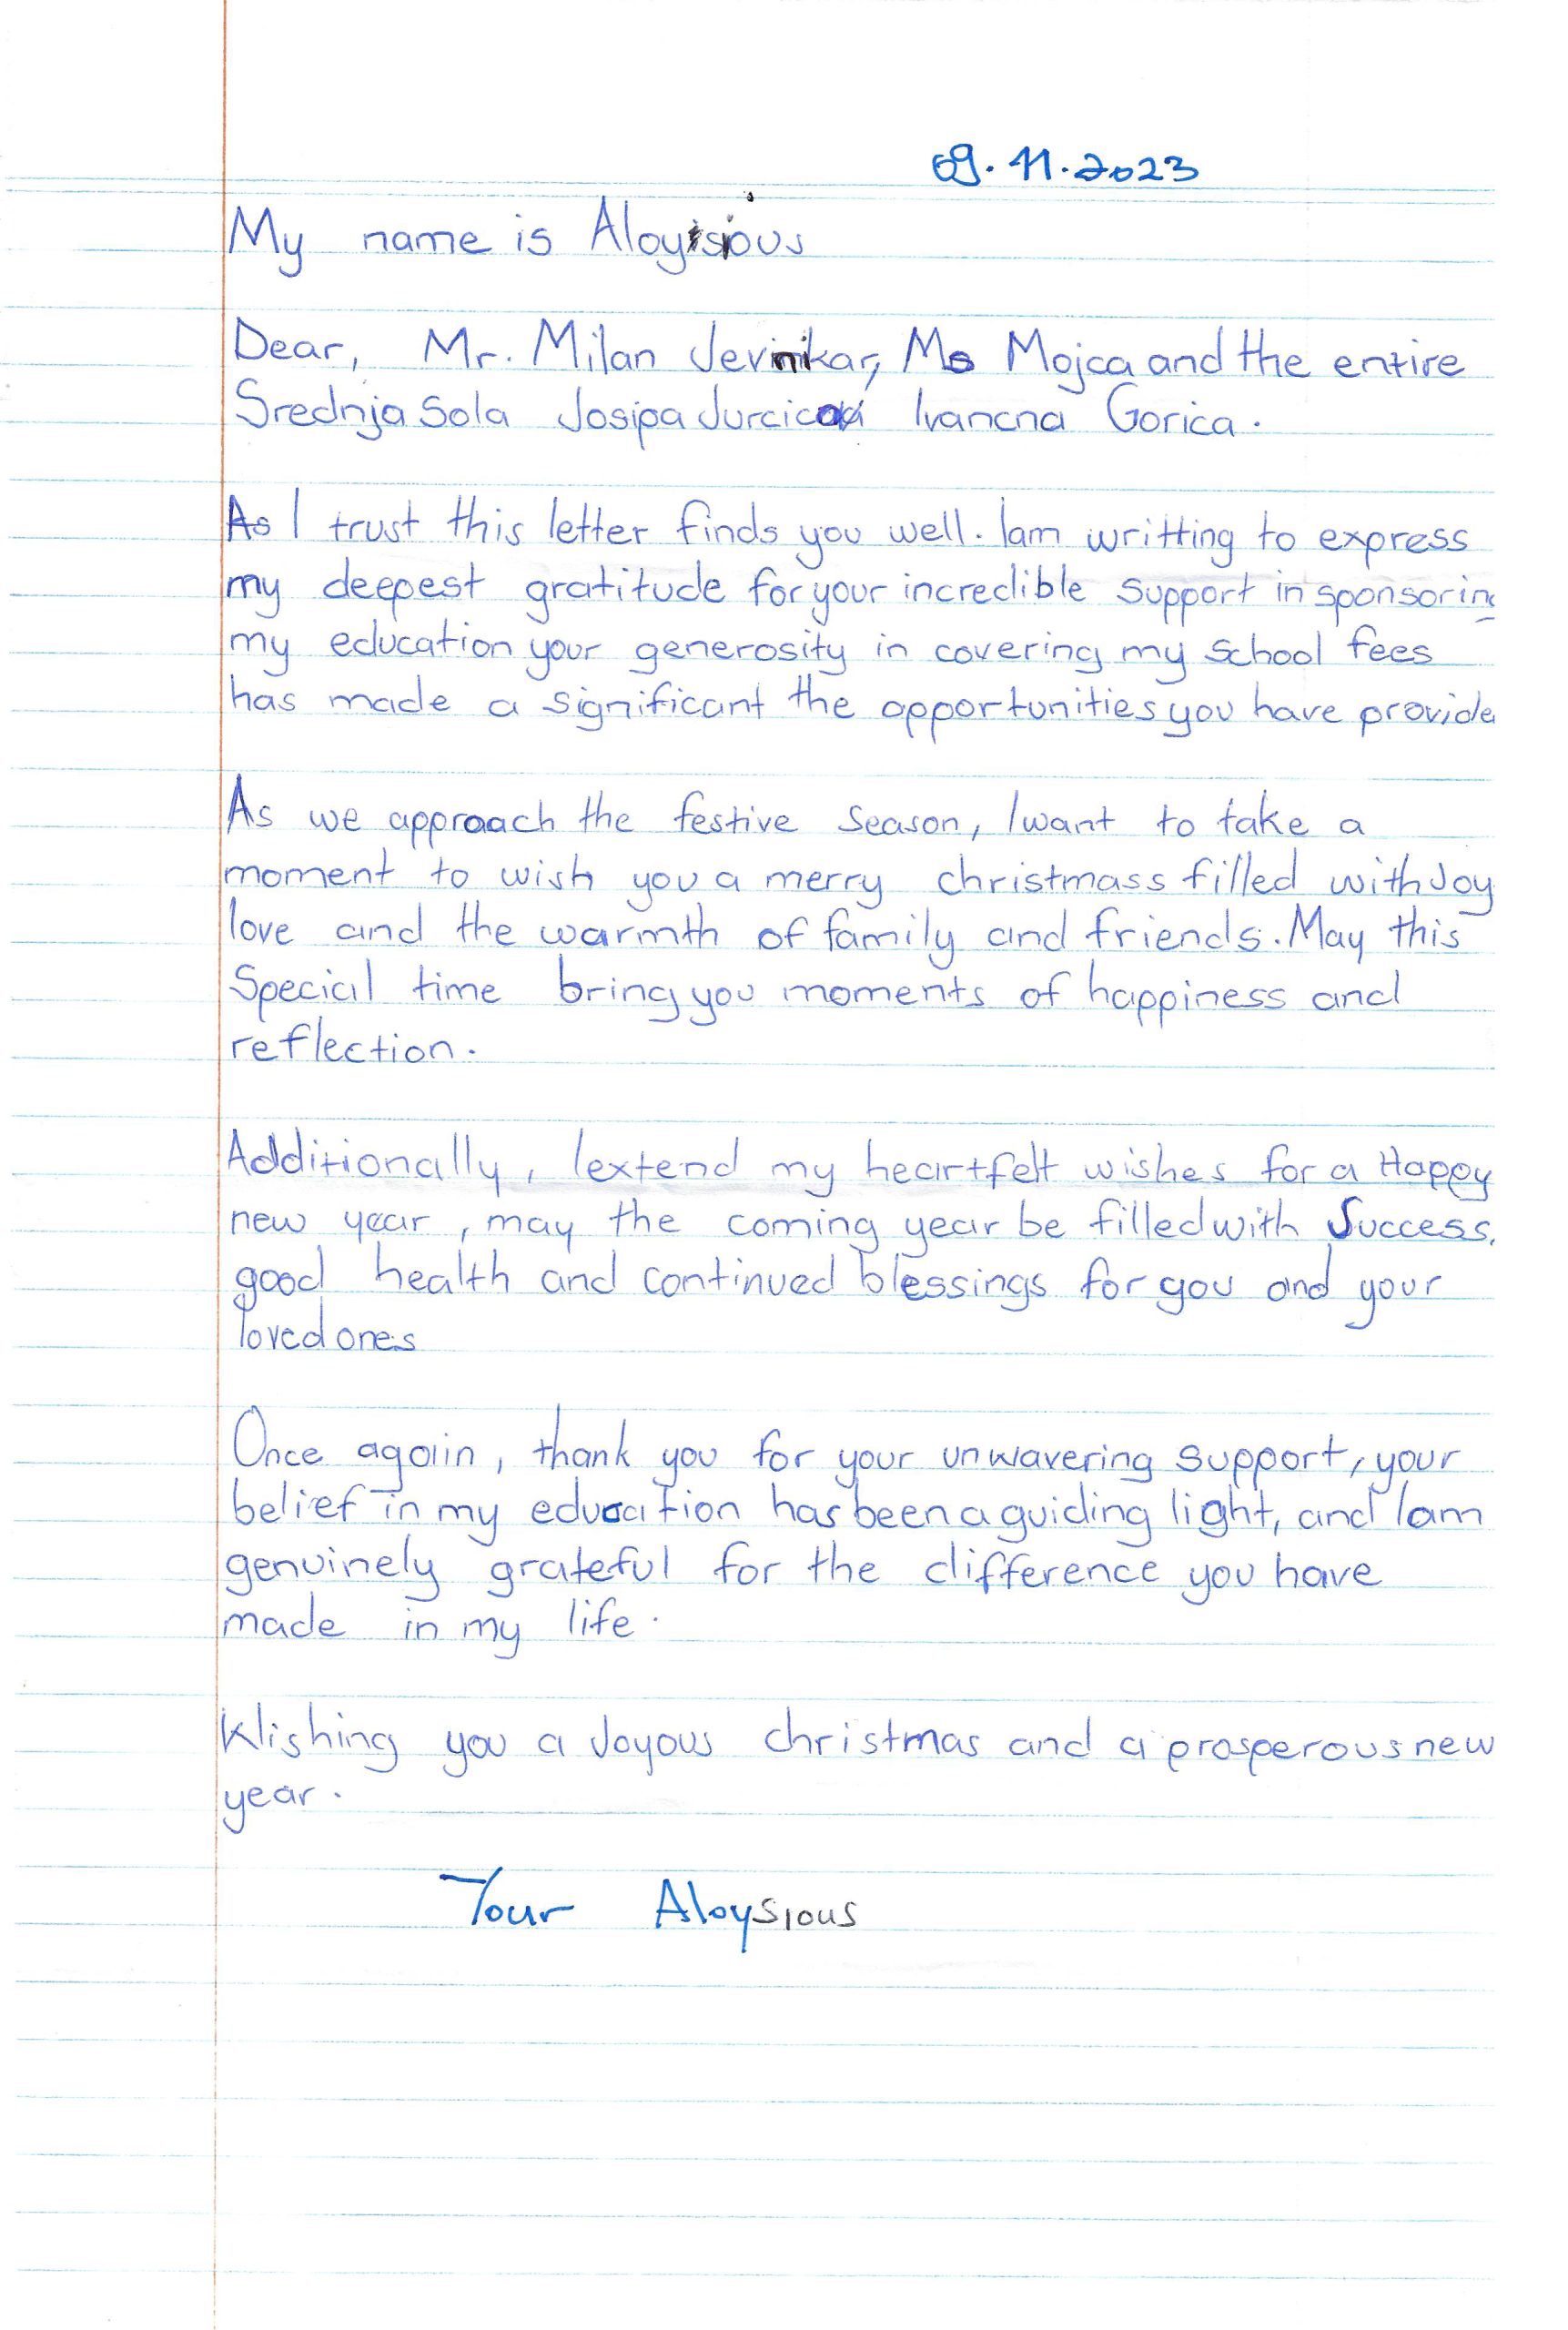 09.11.2023
My name is Aloysious
Dear, Mr. Milan Jevnikar, Ms Mojca and the entire
Srednja Sola Josipa Jurcica Ivancna Gorica.
As I trust this letter finds you well. Iam writting to express
my deepest gratitude for your incredible support in sponsoring
my education your generosity in covering my school fees
has made a significant the opportunities you have provide
As we approach the festive season, I want to take a
moment to wish you a merry christmass filled with Joy
love and the warmth of family and friends. May this
Special time bring you moments of happiness and
reflection.
Additionally, I extend my heartfelt wishes for a Happy
new year, may the coming year be filled with Success,
good health and continued blessings for you and your
loved ones
Once again, thank you for your unwavering support, your
belief in my education has been a guiding light, and Iam
genuinely grateful for the difference you have
made in my life.
Wishing you a Joyous christmas and a prosperous new
year.
Your Aloysious